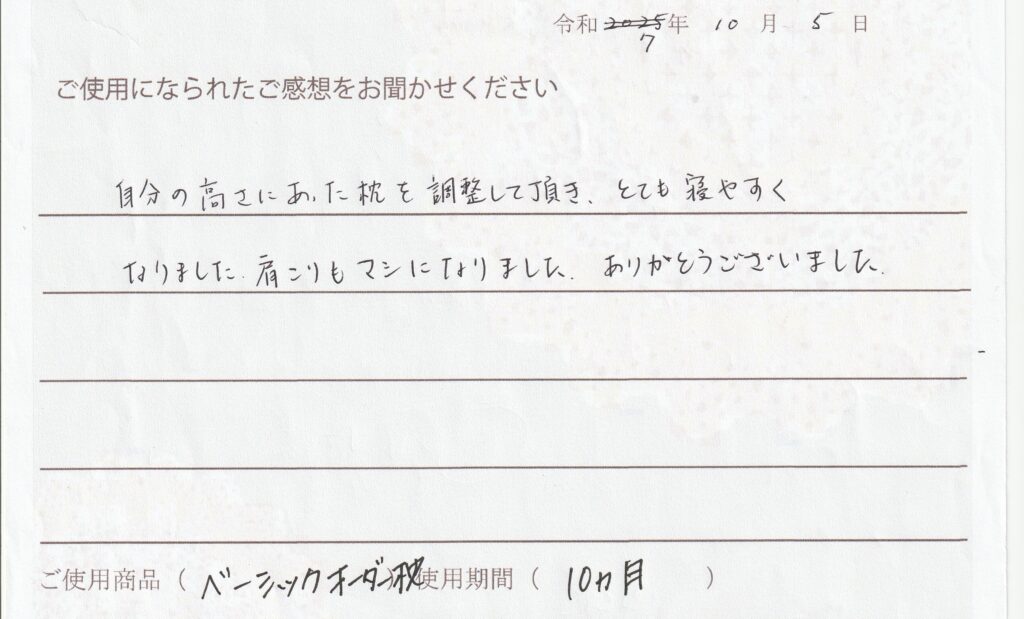 令和 2025年 10 月 5 日
7
ご使用になられたご感想をお聞かせください
自分の高さにあった枕を調整して頂き、とても寝やすく
なりました。肩こりもマシになりました。ありがとうございました。
ご使用商品（ベーシックオーダー枕 使用期間（ 10ヵ月 ）